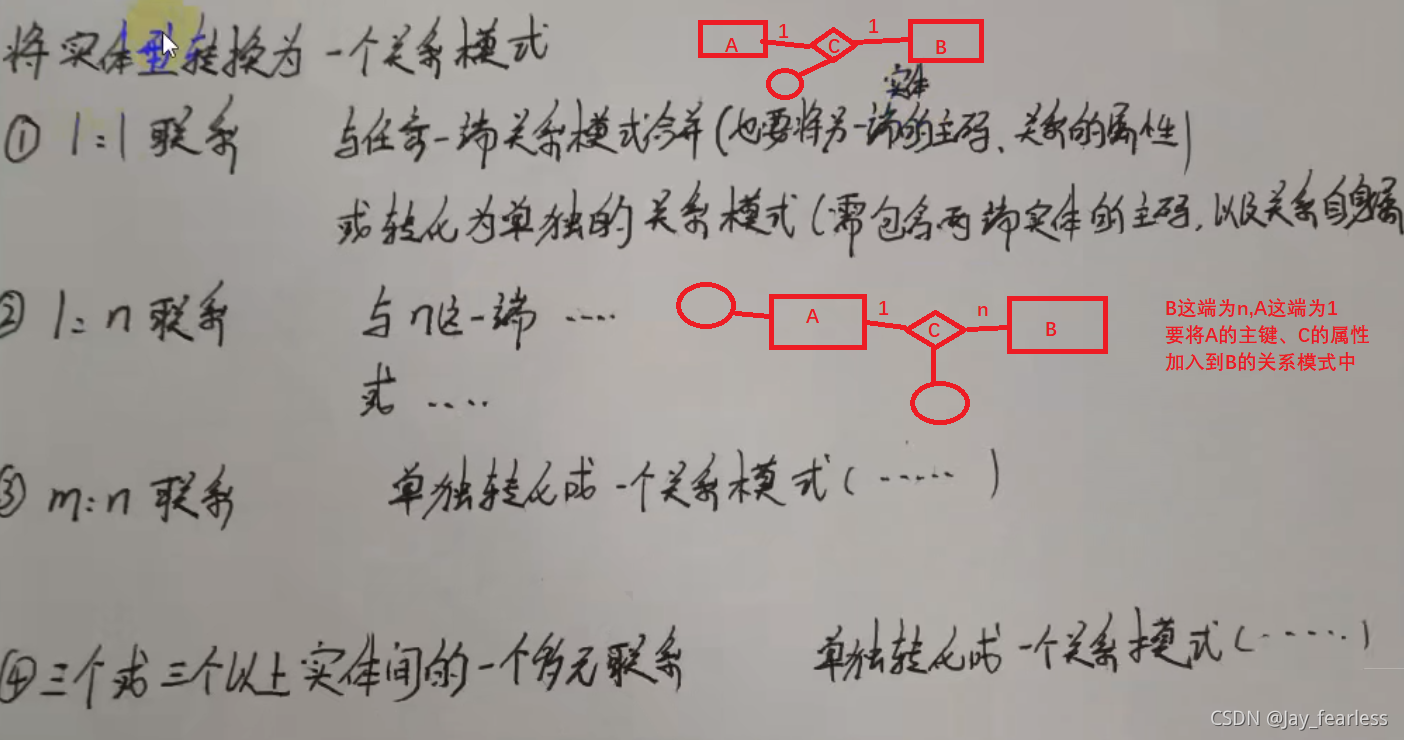 将实体型转换为一个关系模式
A 1 C 1 B
实体
① 1:1 联系 与任意一端关系模式合并(也要将另一端的主码、关系的属性)
或转化为单独的关系模式(需包含两端实体的主码,以及关系自身属
② 1:n 联系 与n这一端 ....
A 1 C n B
B这端为n,A这端为1
要将A的主键、C的属性
加入到B的关系模式中
或 ....
③ m:n 联系 单独转化成一个关系模式(.....)
④ 三个或三个以上实体间的一个多元联系 单独转化成一个关系模式(.....)
CSDN @Jay_fearless